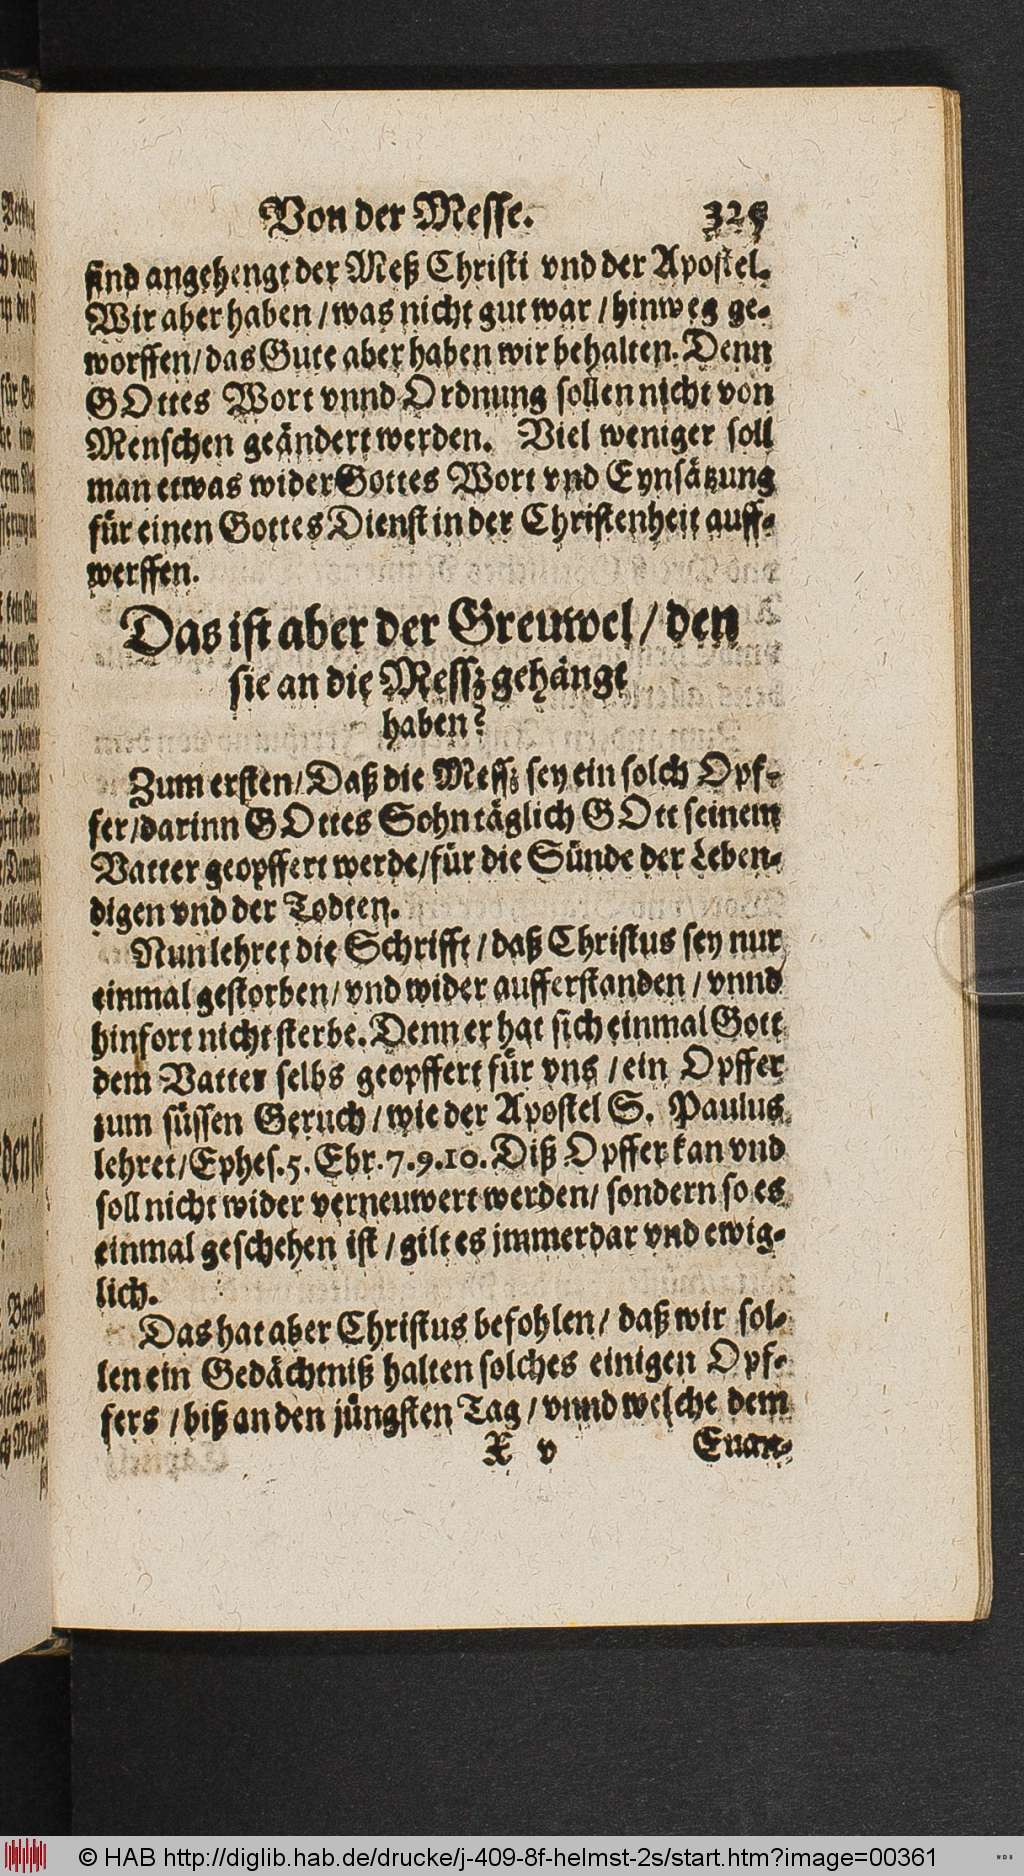 Von der Messe. 325
sind angehengt der Meß Christi vnd der Apostel.
Wir aber haben / was nicht gut war / hinweg ge-
worffen / das Gute aber haben wir behalten. Denn
GOttes Wort vnnd Ordnung sollen nicht von
Menschen geändert werden. Viel weniger soll
man etwas wider Gottes Wort vnd Eynsätzung
für einen Gottes Dienst in der Christenheit auff-
werffen.
Das ist aber der Greuwel / den
sie an die Messz gehängt
haben?
Zum ersten / Daß die Messz sey ein solch Opf-
fer / darinn GOttes Sohn täglich GOtt seinem
Vatter geopffert werde / für die Sünde der Leben-
digen vnd der Todten.
Nun lehret die Schrifft / daß Christus sey nur
einmal gestorben / vnd wider aufferstanden / vnnd
hinfort nicht sterbe. Denn er hat sich einmal Gott
dem Vatter selbs geopffert für vns / ein Opffer
zum süssen Geruch / wie der Apostel S. Paulus
lehret / Ephes. 5. Ebr. 7. 9. 10. Diß Opffer kan vnd
soll nicht wider verneuwert werden / sondern so es
einmal geschehen ist / gilt es jmmerdar vnd ewig-
lich.
Das hat aber Christus befohlen / daß wir sol-
len ein Gedächtniß halten solches einigen Opf-
fers / biß an den jüngsten Tag / vnnd welche dem
X v Euan-
© HAB http://diglib.hab.de/drucke/j-409-8f-helmst-2s/start.htm?image=00361